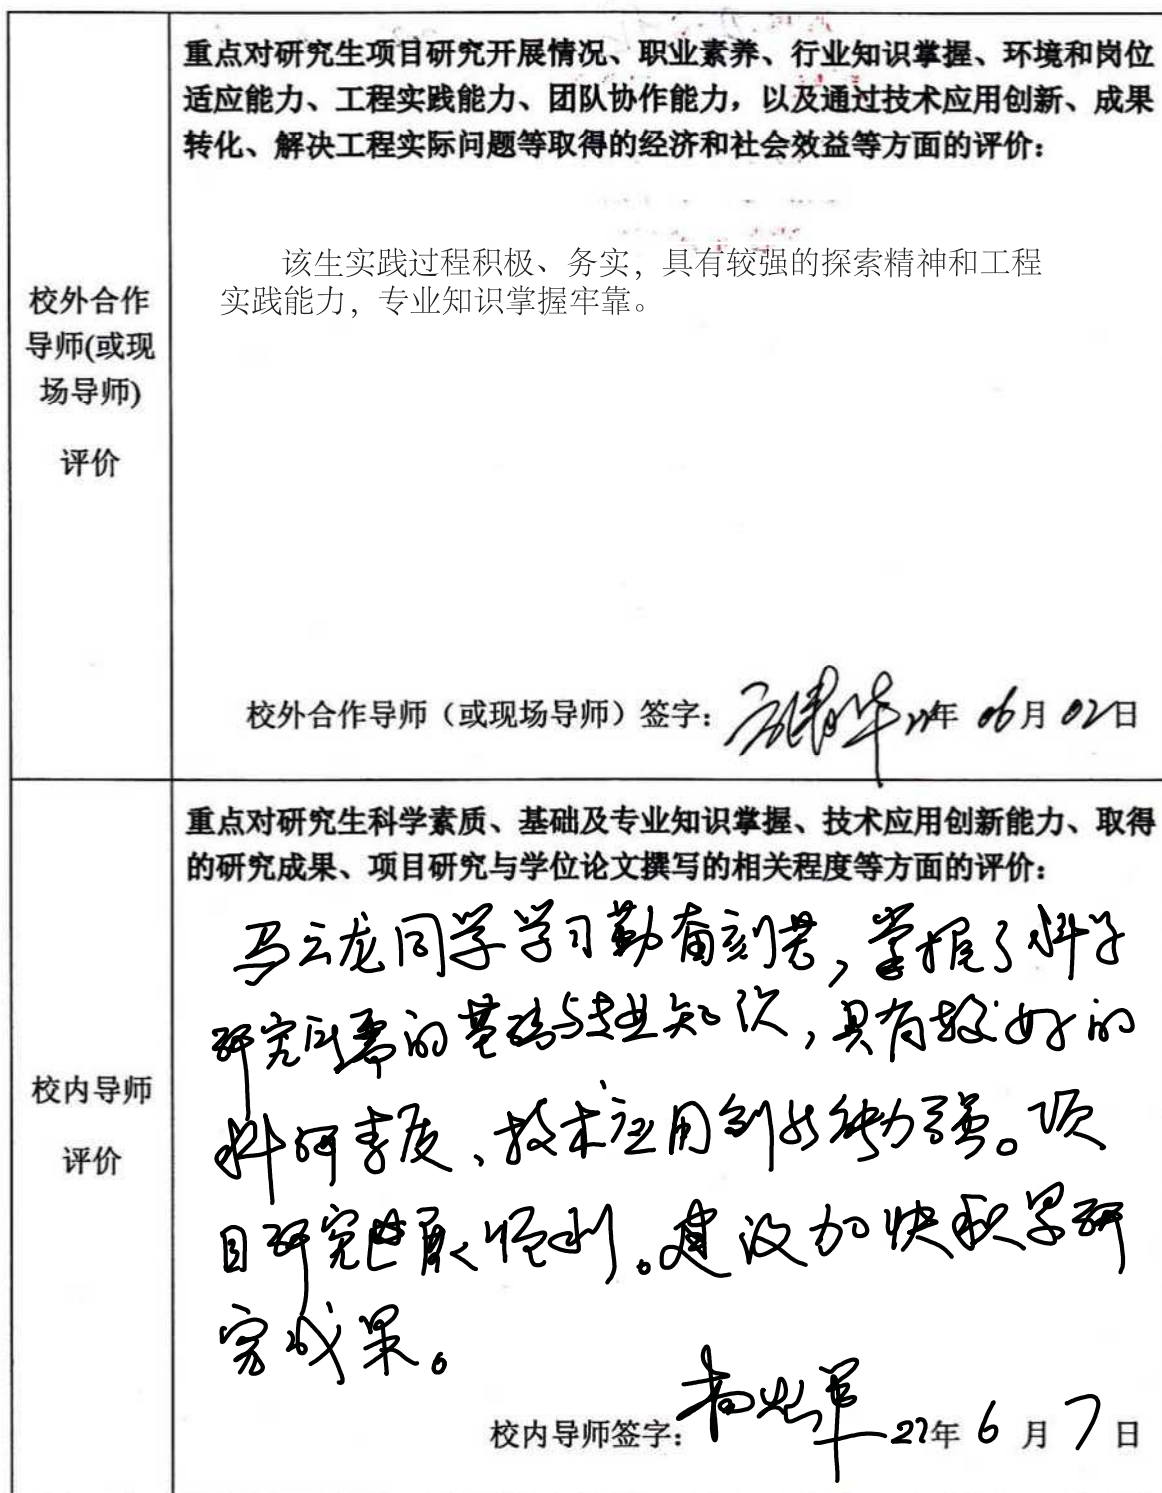 重点对研究生项目研究开展情况、职业素养、行业知识掌握、环境和岗位
适应能力、工程实践能力、团队协作能力，以及通过技术应用创新、成果
转化、解决工程实际问题等取得的经济和社会效益等方面的评价：
该生实践过程积极、务实，具有较强的探索精神和工程
实践能力，专业知识掌握牢靠。
校外合作
导师(或现
场导师)
评价
校外合作导师（或现场导师）签字： 年 06月 02日
重点对研究生科学素质、基础及专业知识掌握、技术应用创新能力、取得
的研究成果、项目研究与学位论文撰写的相关程度等方面的评价：
马云龙同学学习勤奋刻苦，掌握了科学
研究所需的基础与专业知识，具有较好的
科研素质、技术应用创新能力强。项
目研究进展顺利。建议加快积累研
究成果。
校内导师
评价
校内导师签字： 年 6 月 7 日